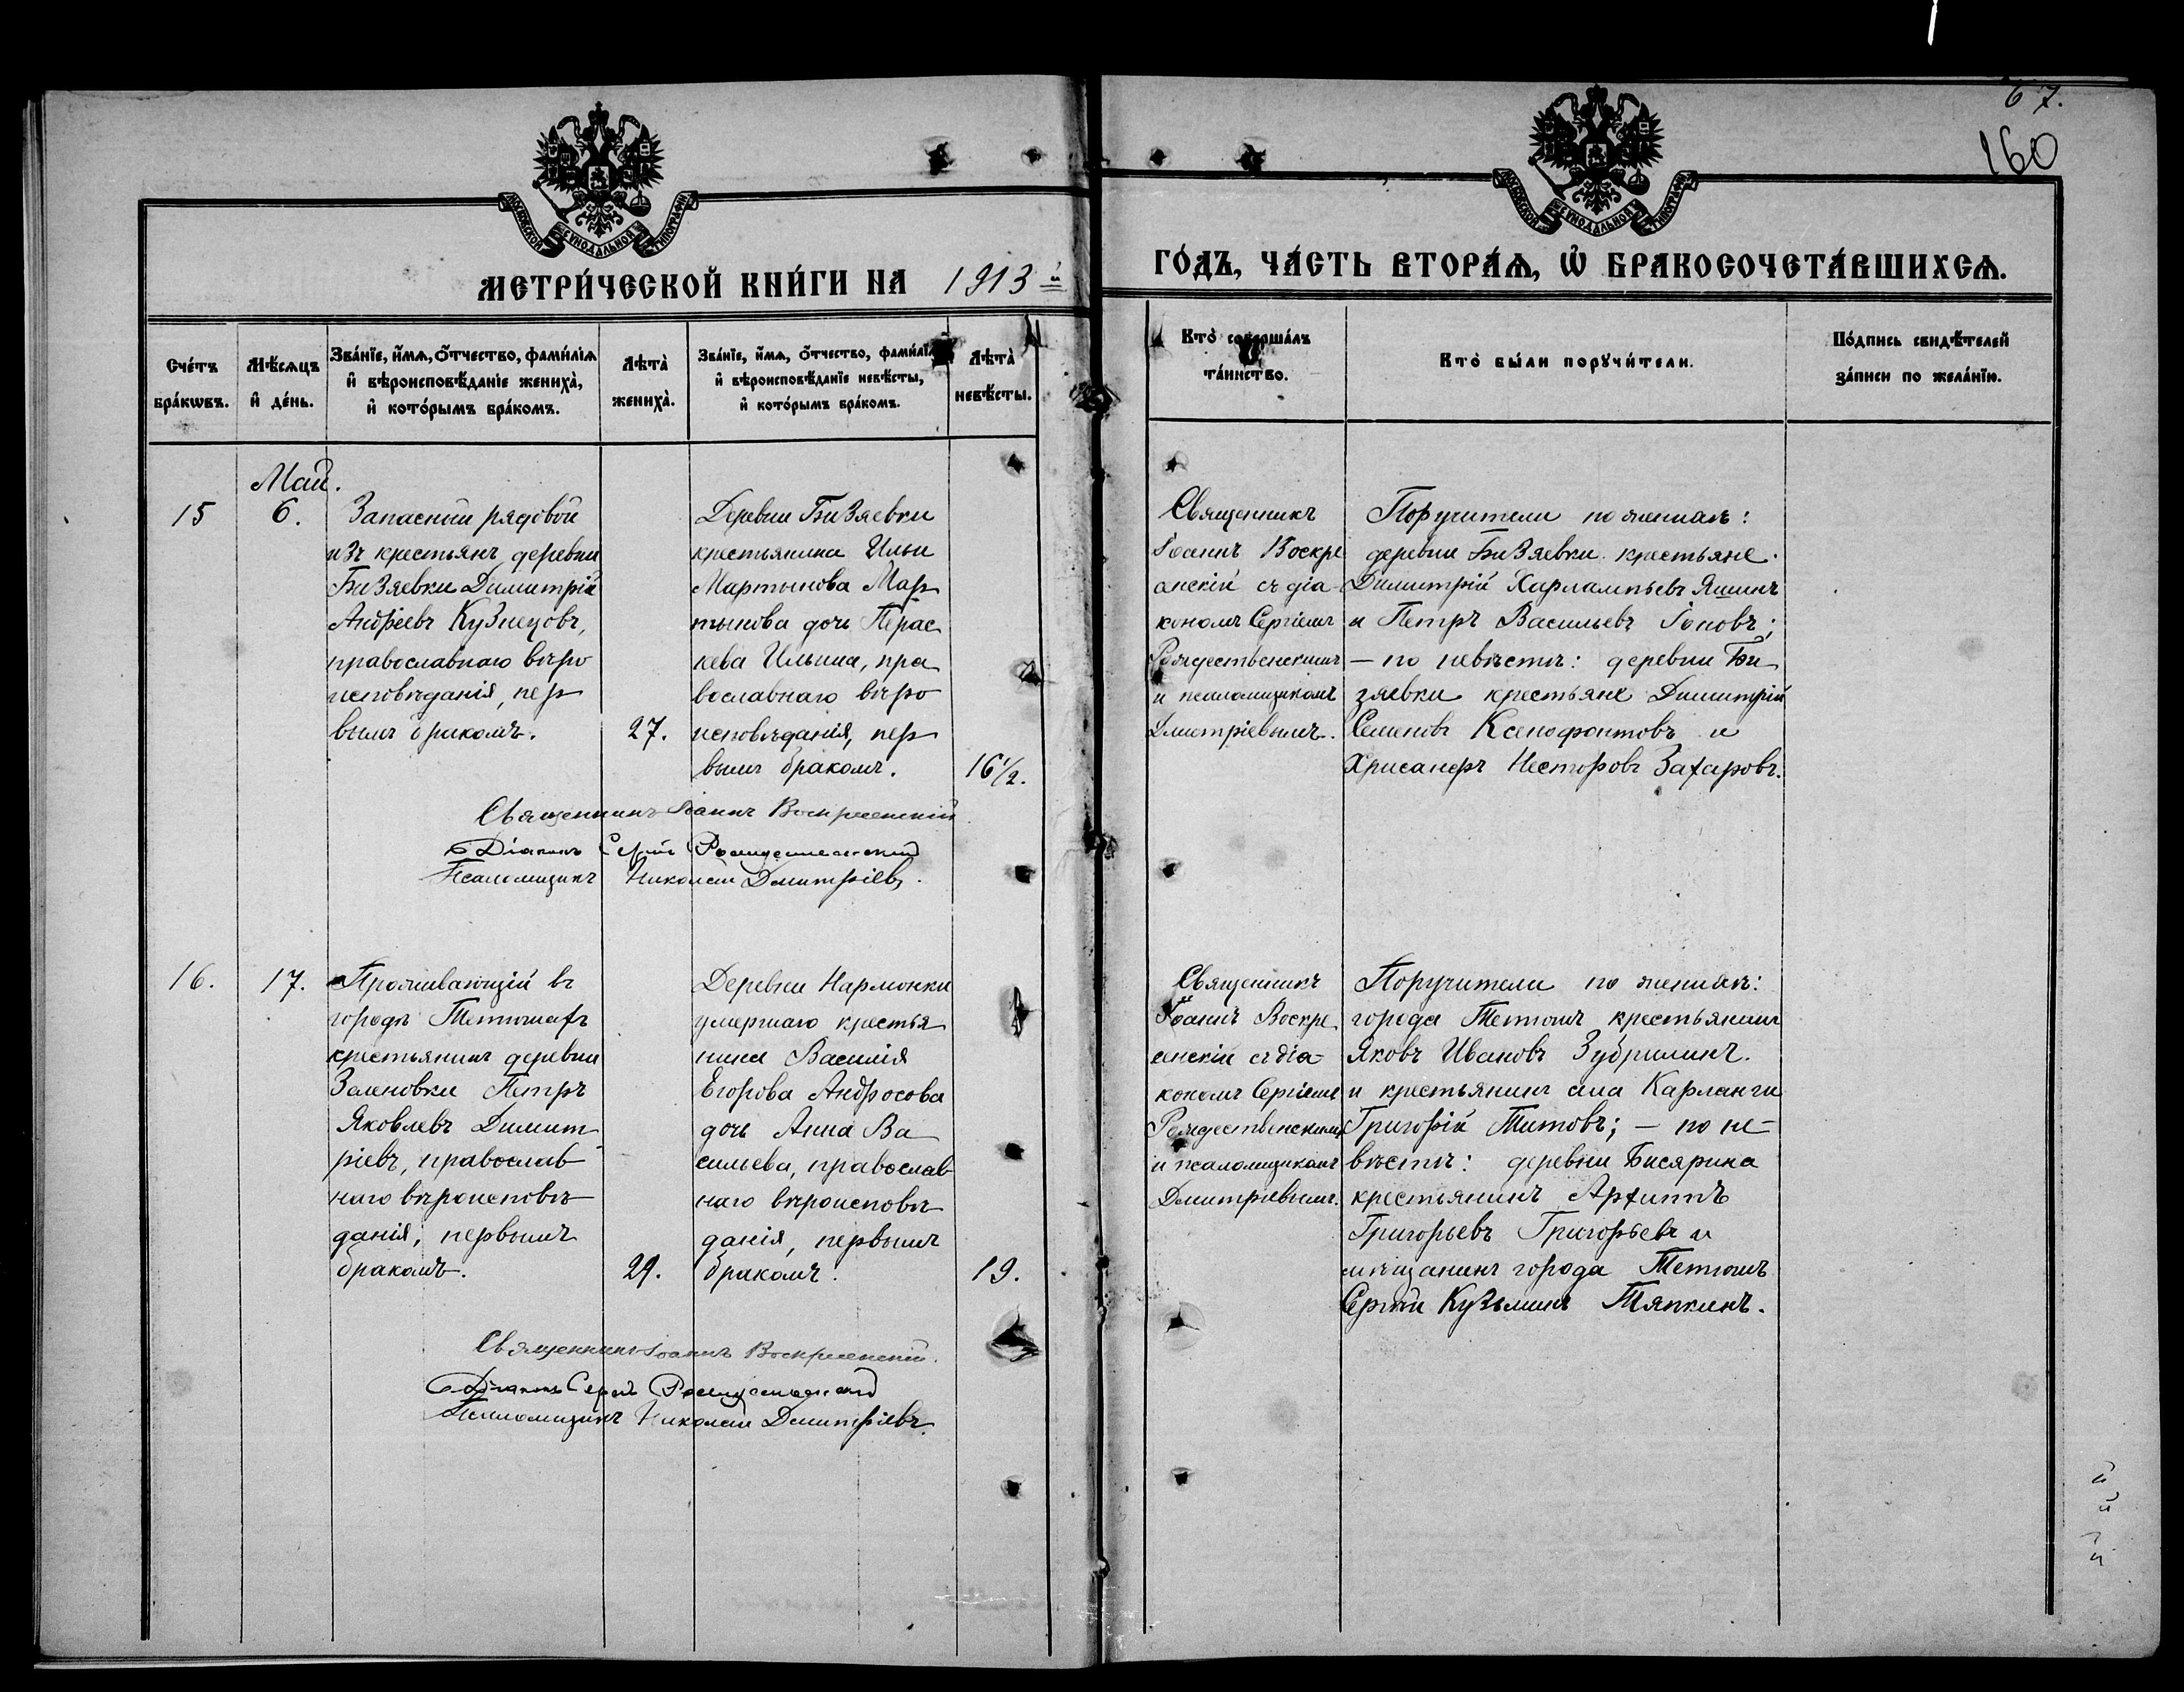 67.
160
МОСКОВСКОЙ СѴНОДАЛЬНОЙ ТИПОГРАФІИ
МОСКОВСКОЙ СѴНОДАЛЬНОЙ ТИПОГРАФІИ
МЕТРИ́ЧЕСКОЙ КНИ́ГИ НА 1913й
ГО́ДЪ, ЧА́СТЬ ВТОРА́Ѧ, Ѡ҆ БРАКОСОЧЕТА́ВШИХСѦ.
Сче́тъ
бра́кѡвъ.
Мѣ́сѧцъ
и҆ де́нь.
Зва́нїе, и҆́мѧ, ѻ҆́тчество, фами́лїѧ
и҆ вѣроисповѣ́данїе жениха̀,
и҆ кото́рымъ бра́комъ.
Лѣта̀
жениха̀.
Зва́нїе, и҆́мѧ, ѻ҆́тчество, фами́лїѧ
и҆ вѣроисповѣ́данїе невѣ́сты,
и҆ кото́рымъ бра́комъ.
Лѣта̀
невѣ́сты.
Кто̀ соверша́лъ
та́инство.
Кто̀ бы́ли порꙋчи́тели.
По́дпись свидѣ́телей
за́писи по жела́нїю.
Май.
15
6.
Запасный рядовой
изъ крестьянъ деревни
Бизяевки Димитрій
Андреевъ Кузнецовъ,
православнаго вѣро
исповѣданія, пер
вымъ бракомъ.
27.
Деревни Бизяевки
крестьянина Ильи
Мартынова Мар
тынова дочь Парас
кева Ильина, пра
вославнаго вѣро
исповѣданія, пер
вымъ бракомъ.
16 1/2.
Священникъ
Іоаннъ Воскре
сенскій съ діа-
кономъ Сергіемъ
Рождественскимъ
и псаломщикомъ
Дмитріевымъ.
Поручители по женихѣ:
деревни Бизяевки крестьяне
Димитрій Харлампьевъ Яшинъ
и Петръ Васильевъ Іоновъ;
— по невѣстѣ: деревни Би
зяевки крестьяне Димитрій
Семеновъ Ксенофонтовъ и
Хрисанфъ Несторовъ Захаровъ.
Священникъ Іоаннъ Воскресенскій
Діаконъ Сергій Рождественский
Псаломщикъ Николай Дмитріевъ.
16.
17.
Проживающій въ
городѣ Тетюшахъ
крестьянинъ деревни
Петръ
Яковлевъ Димит
ріевъ, православ
наго вѣроисповѣ
данія, первымъ
бракомъ.
29.
Деревни Нармонки
умершаго крестья
нина Василія
Егорова Андросова
дочь Анна Ва
сильева, православ
наго вѣроисповѣ
данія, первымъ
бракомъ.
19.
Священникъ
Іоаннъ Воскре
сенскій съ діа-
кономъ Сергіемъ
Рождественскимъ
и псаломщикомъ
Дмитріевымъ.
Поручители по женихѣ:
города Тетюшъ крестьянинъ
Яковъ Ивановъ Зубрилинъ.
и крестьянинъ села Карланги
Григорій Титовъ; — по не-
вѣстѣ: деревни Бисярина
крестьянинъ Архиппъ
Григорьевъ Григорьевъ и
мѣщанинъ города Тетюшъ
Сергѣй Кузьминъ Тяпкинъ.
Священникъ Іоаннъ Воскресенскій.
Діаконъ Сергій Рождественский
Псаломщикъ Николай Дмитріевъ.